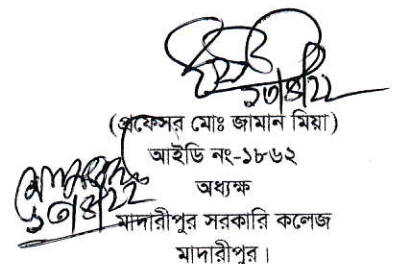 ১৩/৪/২২
(প্রফেসর মোঃ জামান মিয়া)
আইডি নং-১৮৬২
অধ্যক্ষ
১৩/৪/২২
মাদারীপুর সরকারি কলেজ
মাদারীপুর।